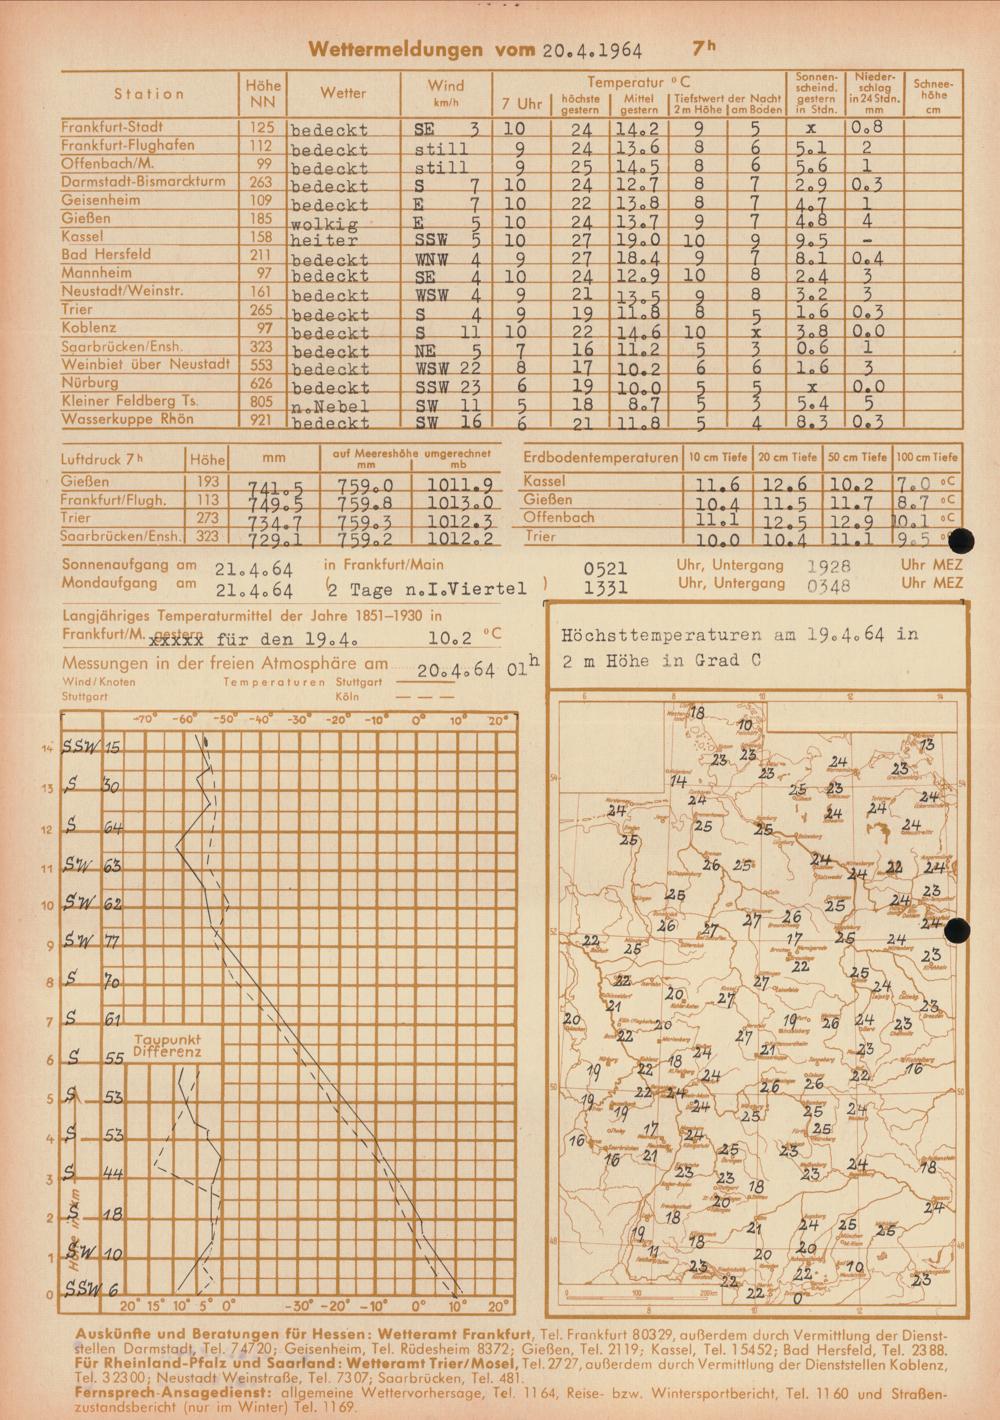 Wettermeldungen vom 20.4.1964 7h
Station Höhe NN Wetter Wind km/h Temperatur °C Sonnen-scheind. gestern in Stdn. Nieder-schlag in 24 Stdn. mm Schnee-höhe cm
7 Uhr höchste gestern Mittel gestern Tiefstwert der Nacht 2 m Höhe am Boden
Frankfurt-Stadt 125 bedeckt SE 3 10 24 14.2 9 5 x 0.8
Frankfurt-Flughafen 112 bedeckt still 9 24 13.6 8 6 5.1 2
Offenbach/M. 99 bedeckt still 9 25 14.5 8 6 5.6 1
Darmstadt-Bismarckturm 263 bedeckt S 7 10 24 12.7 8 7 2.9 0.3
Geisenheim 109 bedeckt E 7 10 22 13.8 8 7 4.7 1
Gießen 185 wolkig E 5 10 24 13.7 9 7 4.8 4
Kassel 158 heiter SSW 5 10 27 19.0 10 9 9.5 -
Bad Hersfeld 211 bedeckt WNW 4 9 27 18.4 9 7 8.1 0.4
Mannheim 97 bedeckt SE 4 10 24 12.9 10 8 2.4 3
Neustadt/Weinstr. 161 bedeckt WSW 4 9 21 13.5 9 8 3.2 3
Trier 265 bedeckt S 4 9 19 11.8 8 5 1.6 0.3
Koblenz 97 bedeckt S 11 10 22 14.6 10 x 3.8 0.0
Saarbrücken/Ensh. 323 bedeckt NE 5 7 16 11.2 5 3 0.6 1
Weinbiet über Neustadt 553 bedeckt WSW 22 8 17 10.2 6 6 1.6 3
Nürburg 626 bedeckt SSW 23 6 19 10.0 5 5 x 0.0
Kleiner Feldberg Ts. 805 n.Nebel SW 11 5 18 8.7 5 3 5.4 5
Wasserkuppe Rhön 921 bedeckt SW 16 6 21 11.8 5 4 8.3 0.3
Luftdruck 7h Höhe mm auf Meereshöhe umgerechnet mm mb
Gießen 193 741.5 759.0 1011.9
Frankfurt/Flugh. 113 749.5 759.8 1013.0
Trier 273 734.7 759.3 1012.3
Saarbrücken/Ensh. 323 729.1 759.2 1012.2
Erdbodentemperaturen 10 cm Tiefe 20 cm Tiefe 50 cm Tiefe 100 cm Tiefe
Kassel 11.6 12.6 10.2 7.0 °C
Gießen 10.4 11.5 11.7 8.7 °C
Offenbach 11.1 12.5 12.9 10.1 °C
Trier 10.0 10.4 11.1 9.5
Sonnenaufgang am 21.4.64 in Frankfurt/Main 0521 Uhr, Untergang 1928 Uhr MEZ
Mondaufgang am 21.4.64 (2 Tage n.I.Viertel) 1331 Uhr, Untergang 0348 Uhr MEZ
Langjähriges Temperaturmittel der Jahre 1851–1930 in
Frankfurt/M. gestern xxxxx für den 19.4. 10.2 °C
Messungen in der freien Atmosphäre am 20.4.64 01h
Wind/Knoten Temperaturen Stuttgart
Stuttgart Köln
Höchsttemperaturen am 19.4.64 in
2 m Höhe in Grad C
-70° -60° -50° -40° -30° -20° -10° 0° 10° 20°
14 SSW 15
13 S 30
12 S 64
11 SW 63
10 SW 62
9 SW 77
8 S 70
7 S 61
Taupunkt
Differenz
6 S 55
5 S 53
4 S 53
3 S 44
2 S 18
1 SW 10
0 SSW 6
Höhe in km
20° 15° 10° 5° 0° -30° -20° -10° 0° 10° 20°
6 8 10 12 14
18 10 13
23 23 24 23
14 23 25 23 24
24 24 24 24
25 25 25 24
26 25 24 24 22 24
25 25 24 23
26 27 27 26 24
22 25 17 25 24 23
22 22 25 24
21 20 27 27 23
20 22 20 19 26 24 23
27 21 23
19 22 18 24 24 26 26 22 16
19 19 22 24 24 25 25 24
16 17 24 25
16 21 25 23 24 18
23 18 23
20 24
18 21 24 25 25
19 11 18 20 20
23 22 22 22 10 23
0
0 100 200km
8 10 12
Auskünfte und Beratungen für Hessen: Wetteramt Frankfurt, Tel. Frankfurt 80329, außerdem durch Vermittlung der Dienst-
stellen Darmstadt, Tel. 74720; Geisenheim, Tel. Rüdesheim 8372; Gießen, Tel. 2119; Kassel, Tel. 15452; Bad Hersfeld, Tel. 2388.
Für Rheinland-Pfalz und Saarland: Wetteramt Trier/Mosel, Tel. 2727, außerdem durch Vermittlung der Dienststellen Koblenz,
Tel. 32300; Neustadt Weinstraße, Tel. 7307; Saarbrücken, Tel. 481.
Fernsprech-Ansagedienst: allgemeine Wettervorhersage, Tel. 1164, Reise- bzw. Wintersportbericht, Tel. 1160 und Straßen-
zustandsbericht (nur im Winter) Tel. 1169.